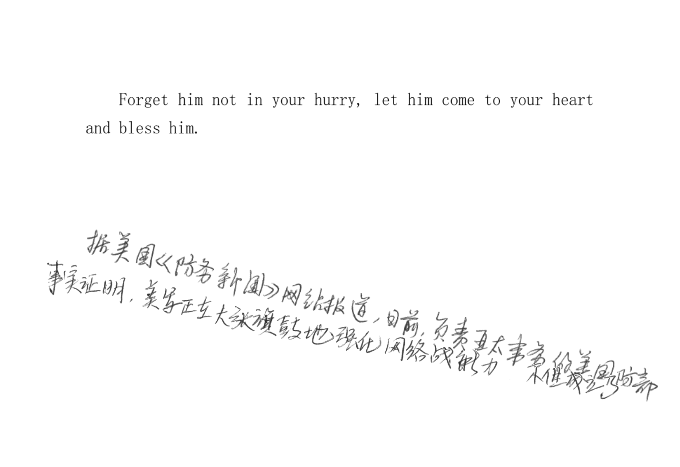 Forget him not in your hurry, let him come to your heart
and bless him.
据美国《防务新闻》网站报道,日前,负责亚太事务的美国国防部
事实证明,美军正在大张旗鼓地强化网络战能力